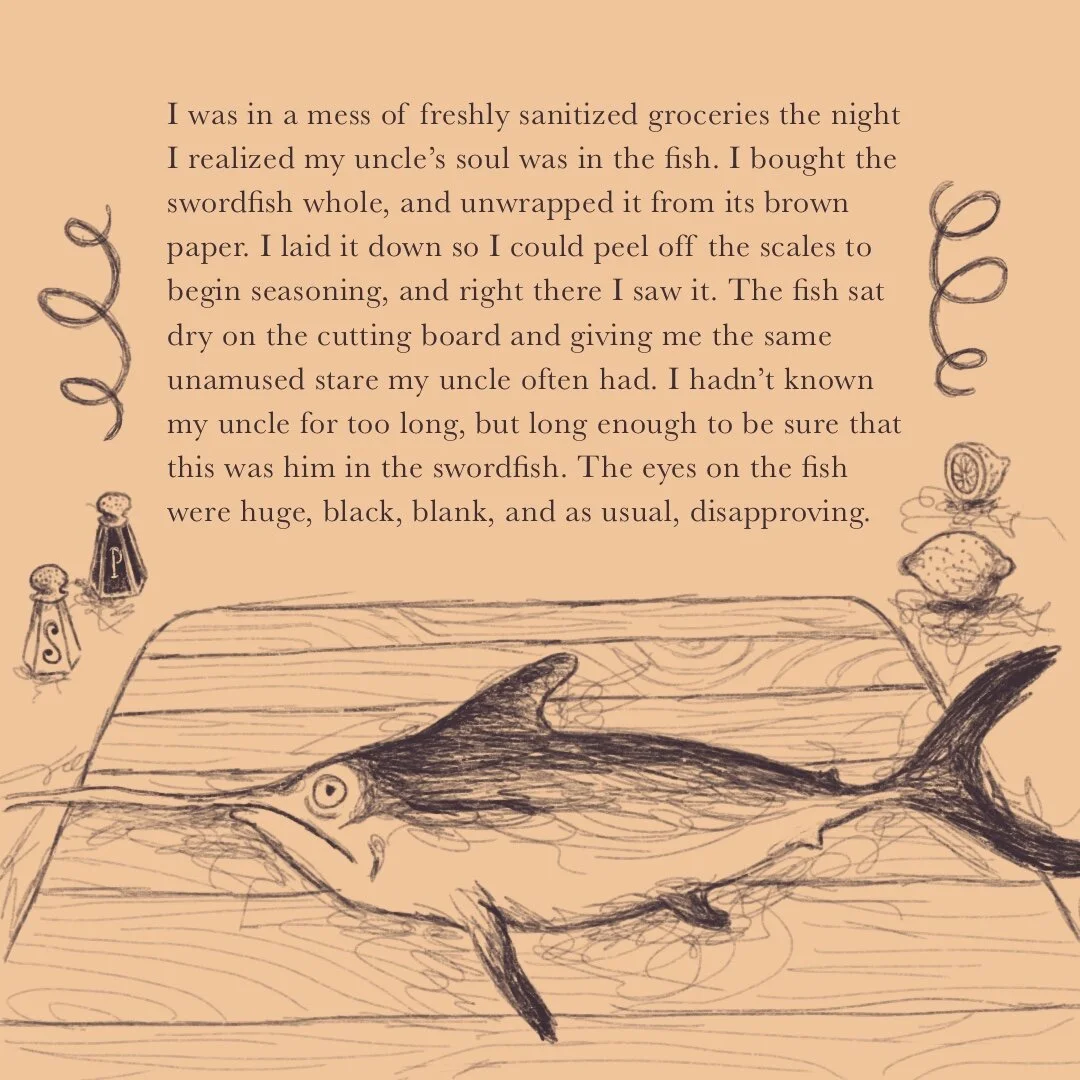 I was in a mess of freshly sanitized groceries the night
I realized my uncle’s soul was in the fish. I bought the
swordfish whole, and unwrapped it from its brown
paper. I laid it down so I could peel off the scales to
begin seasoning, and right there I saw it. The fish sat
dry on the cutting board and giving me the same
unamused stare my uncle often had. I hadn’t known
my uncle for too long, but long enough to be sure that
this was him in the swordfish. The eyes on the fish
were huge, black, blank, and as usual, disapproving.
P
S